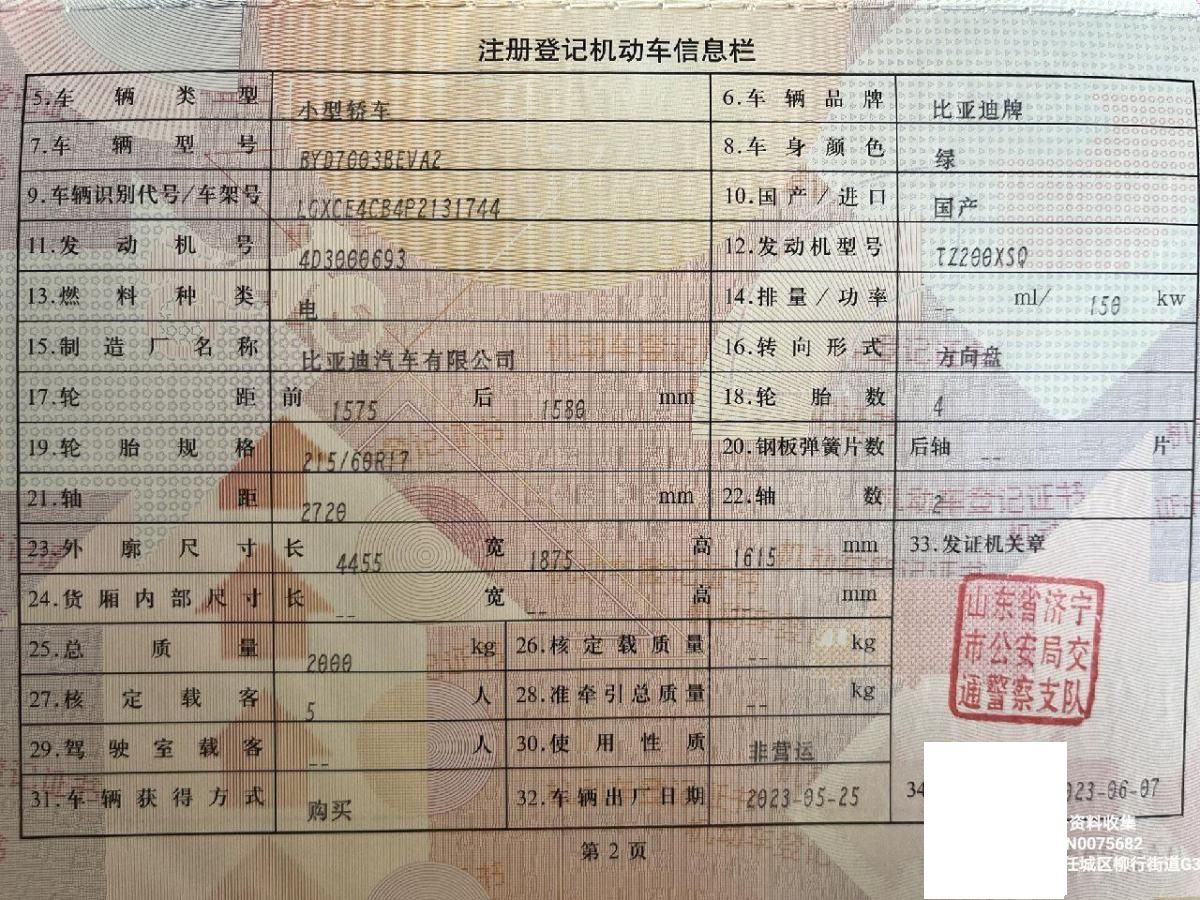 注册登记机动车信息栏
5.车辆类型 小型轿车 6.车辆品牌 比亚迪牌
7.车辆型号 BYD7003BEVA2 8.车身颜色 绿
9.车辆识别代号/车架号 LGXCE4CB4P2131744 10.国产/进口 国产
11.发动机号 4D3000693 12.发动机型号 TZ200XSQ
13.燃料种类 电 14.排量/功率 -- ml/ 150 kw
15.制造厂名称 比亚迪汽车有限公司 16.转向形式 方向盘
17.轮距 前 1575 后 1580 mm 18.轮胎数 4
19.轮胎规格 215/60R17 20.钢板弹簧片数 后轴 -- 片
21.轴距 2720 mm 22.轴数 2
23.外廓尺寸 长 4455 宽 1875 高 1615 mm 33.发证机关章
24.货厢内部尺寸 长 -- 宽 -- 高 -- mm
山东省济宁
市公安局交
通警察支队
25.总质量 2000 kg 26.核定载质量 -- kg
27.核定载客 5 人 28.准牵引总质量 -- kg
29.驾驶室载客 -- 人 30.使用性质 非营运
31.车辆获得方式 购买 32.车辆出厂日期 2023-05-25 34 023-06-07
资料收集
N0075682
任城区柳行街道G3
第2页